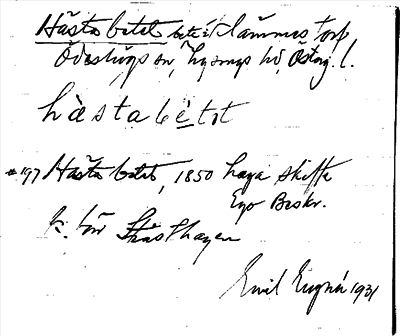 Hästa betet bete i Klämmestorp,
Ödeshögs sn, Lysings hd, Östg. l.
hàstabètət
#197 Hästa betet, 1850 laga skifte
Ego Beskr.
k. för Hästhagen
Emil Lugn 1931